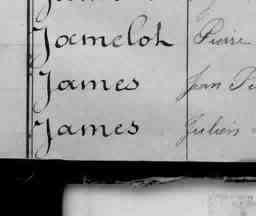 Jamelot Pierre
James Jean
James Julien